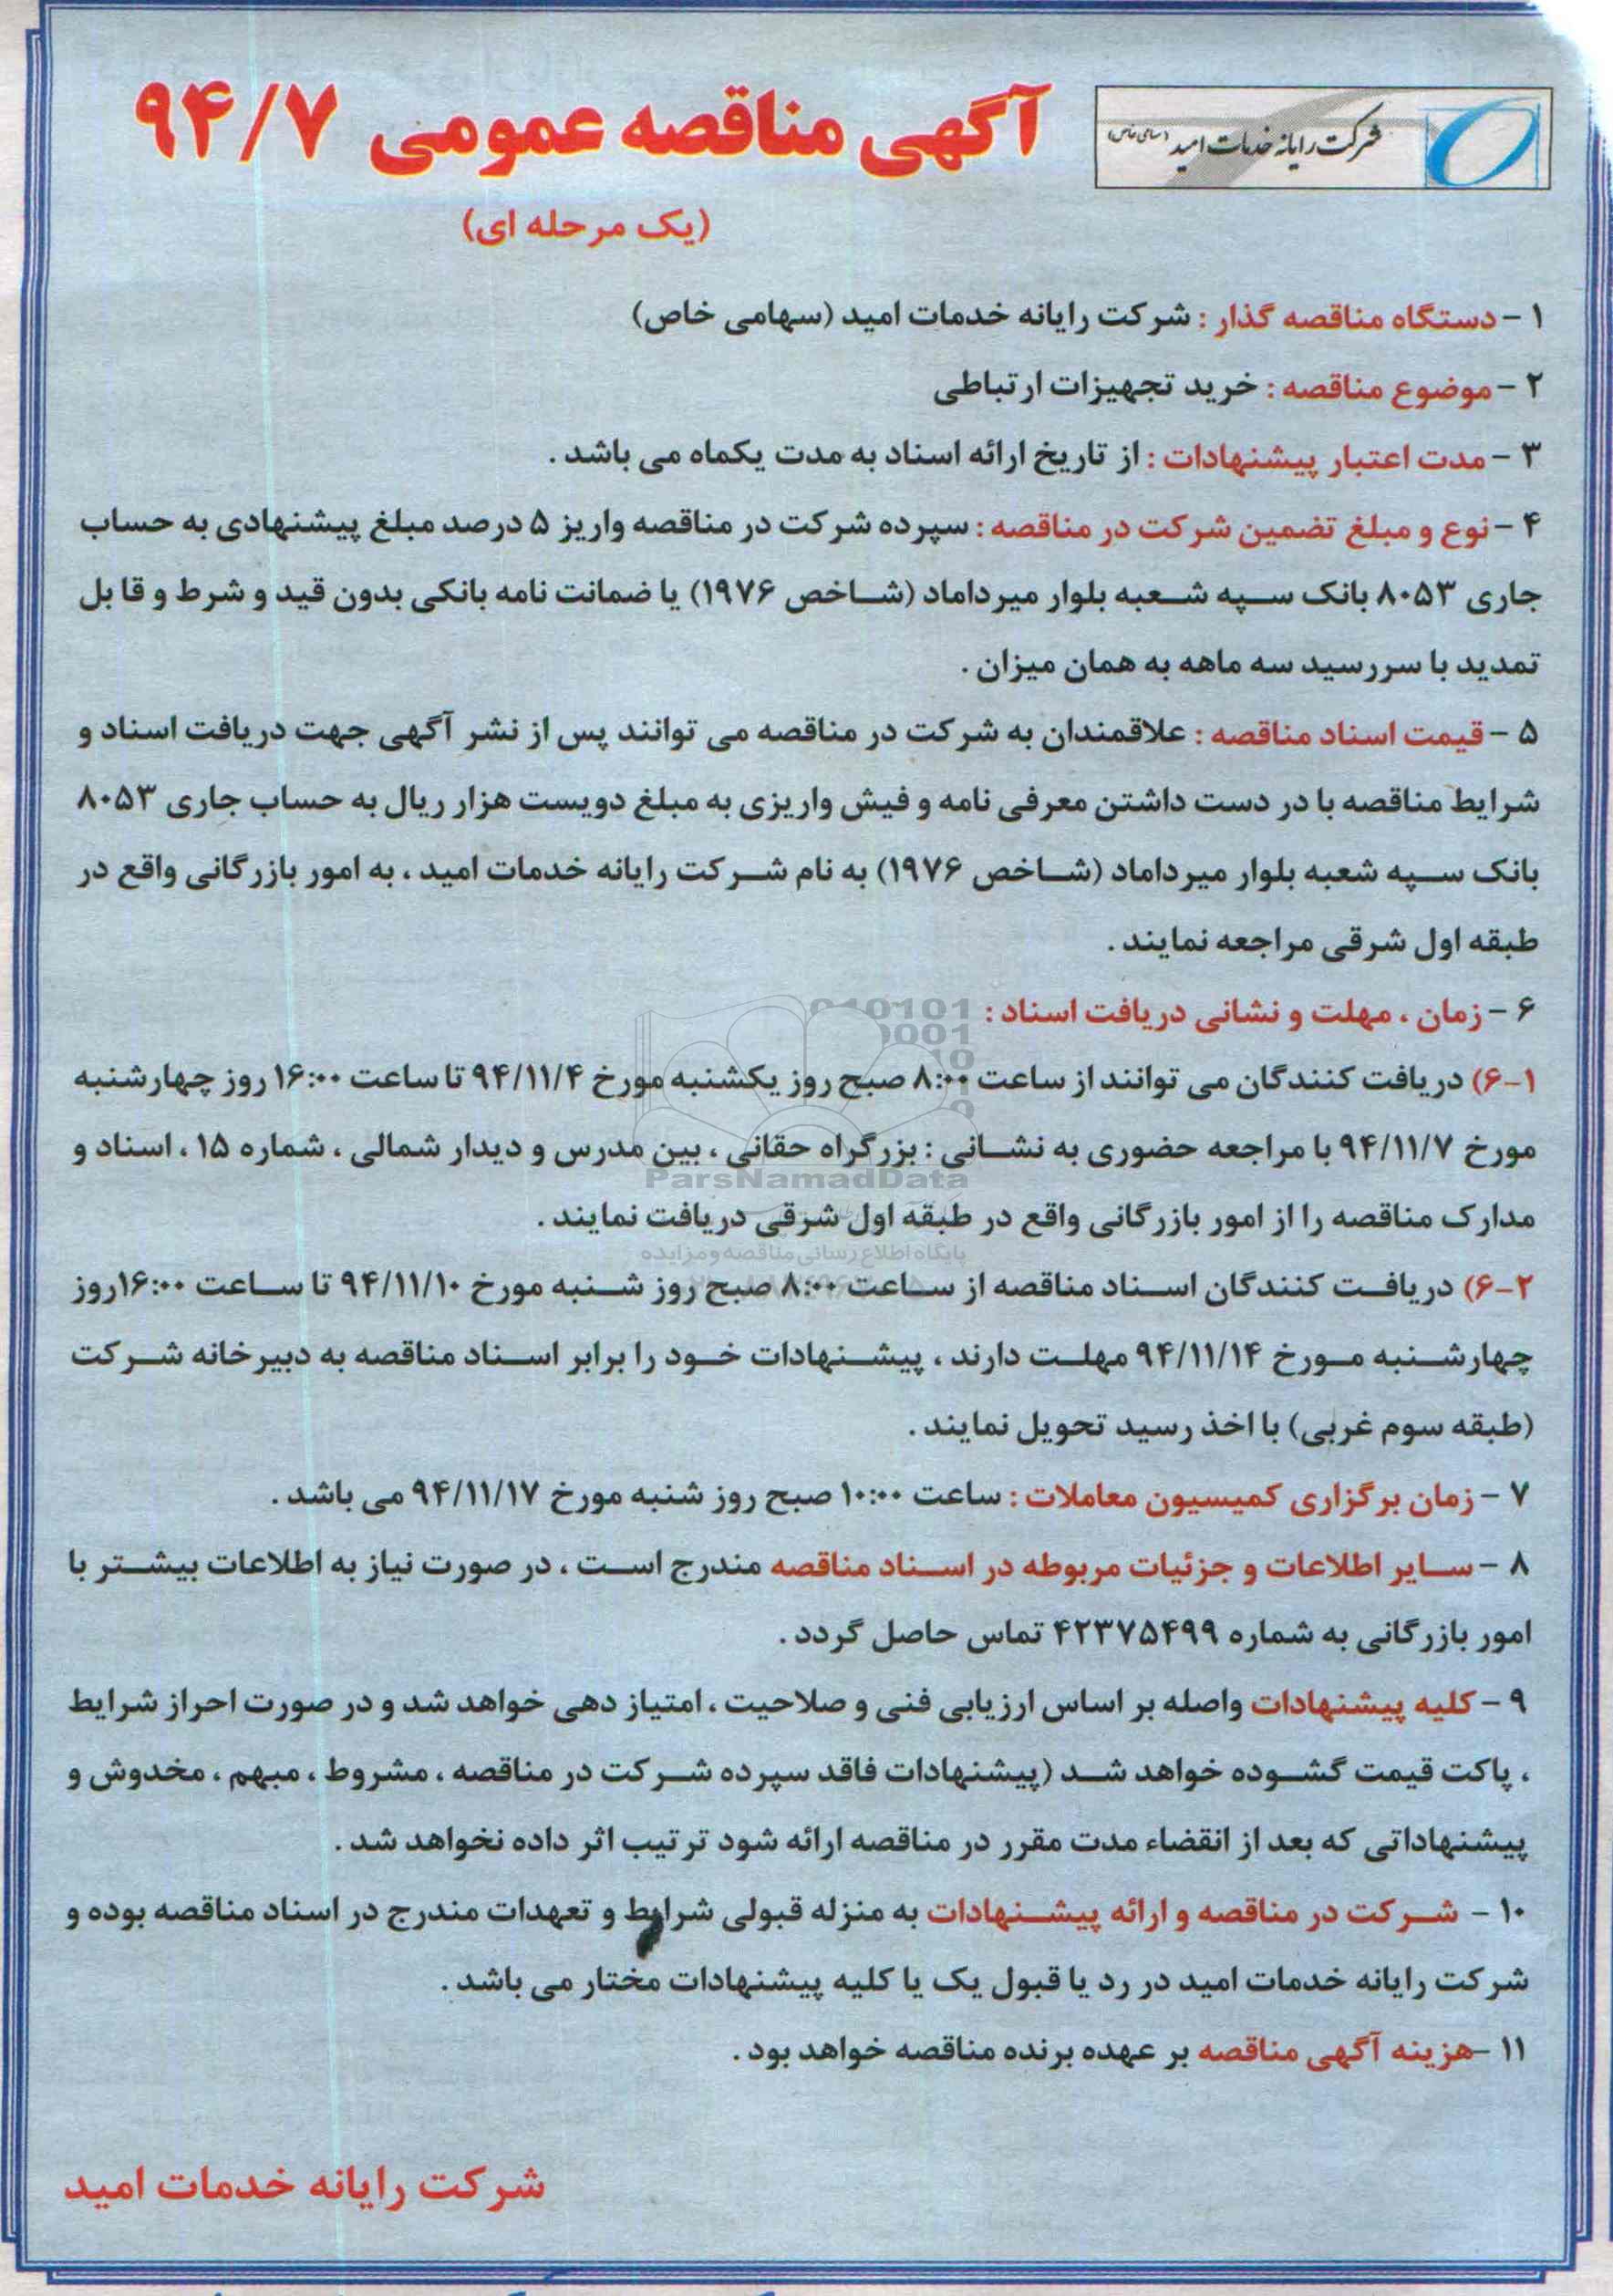 شرکت رایانه خدمات امید (سهامی خاص)
آگهی مناقصه عمومی ۹۴/۷
(یک مرحله ای)
۱ - دستگاه مناقصه گذار : شرکت رایانه خدمات امید (سهامی خاص)
۲ - موضوع مناقصه : خرید تجهیزات ارتباطی
۳ - مدت اعتبار پیشنهادات : از تاریخ ارائه اسناد به مدت یکماه می باشد .
۴ - نوع و مبلغ تضمین شرکت در مناقصه : سپرده شرکت در مناقصه واریز ۵ درصد مبلغ پیشنهادی به حساب
جاری ۸۰۵۳ بانک سپه شعبه بلوار میرداماد (شاخص ۱۹۷۶) یا ضمانت نامه بانکی بدون قید و شرط و قابل
تمدید با سررسید سه ماهه به همان میزان .
۵ - قیمت اسناد مناقصه : علاقمندان به شرکت در مناقصه می توانند پس از نشر آگهی جهت دریافت اسناد و
شرایط مناقصه با در دست داشتن معرفی نامه و فیش واریزی به مبلغ دویست هزار ریال به حساب جاری ۸۰۵۳
بانک سپه شعبه بلوار میرداماد (شاخص ۱۹۷۶) به نام شرکت رایانه خدمات امید ، به امور بازرگانی واقع در
طبقه اول شرقی مراجعه نمایند .
۶ - زمان ، مهلت و نشانی دریافت اسناد :
۶-۱) دریافت کنندگان می توانند از ساعت ۸:۰۰ صبح روز یکشنبه مورخ ۹۴/۱۱/۴ تا ساعت ۱۶:۰۰ روز چهارشنبه
مورخ ۹۴/۱۱/۷ با مراجعه حضوری به نشانی : بزرگراه حقانی ، بین مدرس و دیدار شمالی ، شماره ۱۵ ، اسناد و
ParsNamadData
مدارک مناقصه را از امور بازرگانی واقع در طبقه اول شرقی دریافت نمایند .
پایگاه اطلاع رسانی مناقصه و مزایده
۶-۲) دریافت کنندگان اسناد مناقصه از ساعت ۸:۰۰ صبح روز شنبه مورخ ۹۴/۱۱/۱۰ تا ساعت ۱۶:۰۰روز
چهارشنبه مورخ ۹۴/۱۱/۱۴ مهلت دارند ، پیشنهادات خود را برابر اسناد مناقصه به دبیرخانه شرکت
(طبقه سوم غربی) با اخذ رسید تحویل نمایند .
۷ - زمان برگزاری کمیسیون معاملات : ساعت ۱۰:۰۰ صبح روز شنبه مورخ ۹۴/۱۱/۱۷ می باشد .
۸ - سایر اطلاعات و جزئیات مربوطه در اسناد مناقصه مندرج است ، در صورت نیاز به اطلاعات بیشتر با
امور بازرگانی به شماره ۴۲۳۷۵۴۹۹ تماس حاصل گردد .
۹ - کلیه پیشنهادات واصله بر اساس ارزیابی فنی و صلاحیت ، امتیاز دهی خواهد شد و در صورت احراز شرایط
، پاکت قیمت گشوده خواهد شد (پیشنهادات فاقد سپرده شرکت در مناقصه ، مشروط ، مبهم ، مخدوش و
پیشنهاداتی که بعد از انقضاء مدت مقرر در مناقصه ارائه شود ترتیب اثر داده نخواهد شد .
۱۰ - شرکت در مناقصه و ارائه پیشنهادات به منزله قبولی شرایط و تعهدات مندرج در اسناد مناقصه بوده و
شرکت رایانه خدمات امید در رد یا قبول یک یا کلیه پیشنهادات مختار می باشد .
۱۱ -هزینه آگهی مناقصه بر عهده برنده مناقصه خواهد بود .
شرکت رایانه خدمات امید